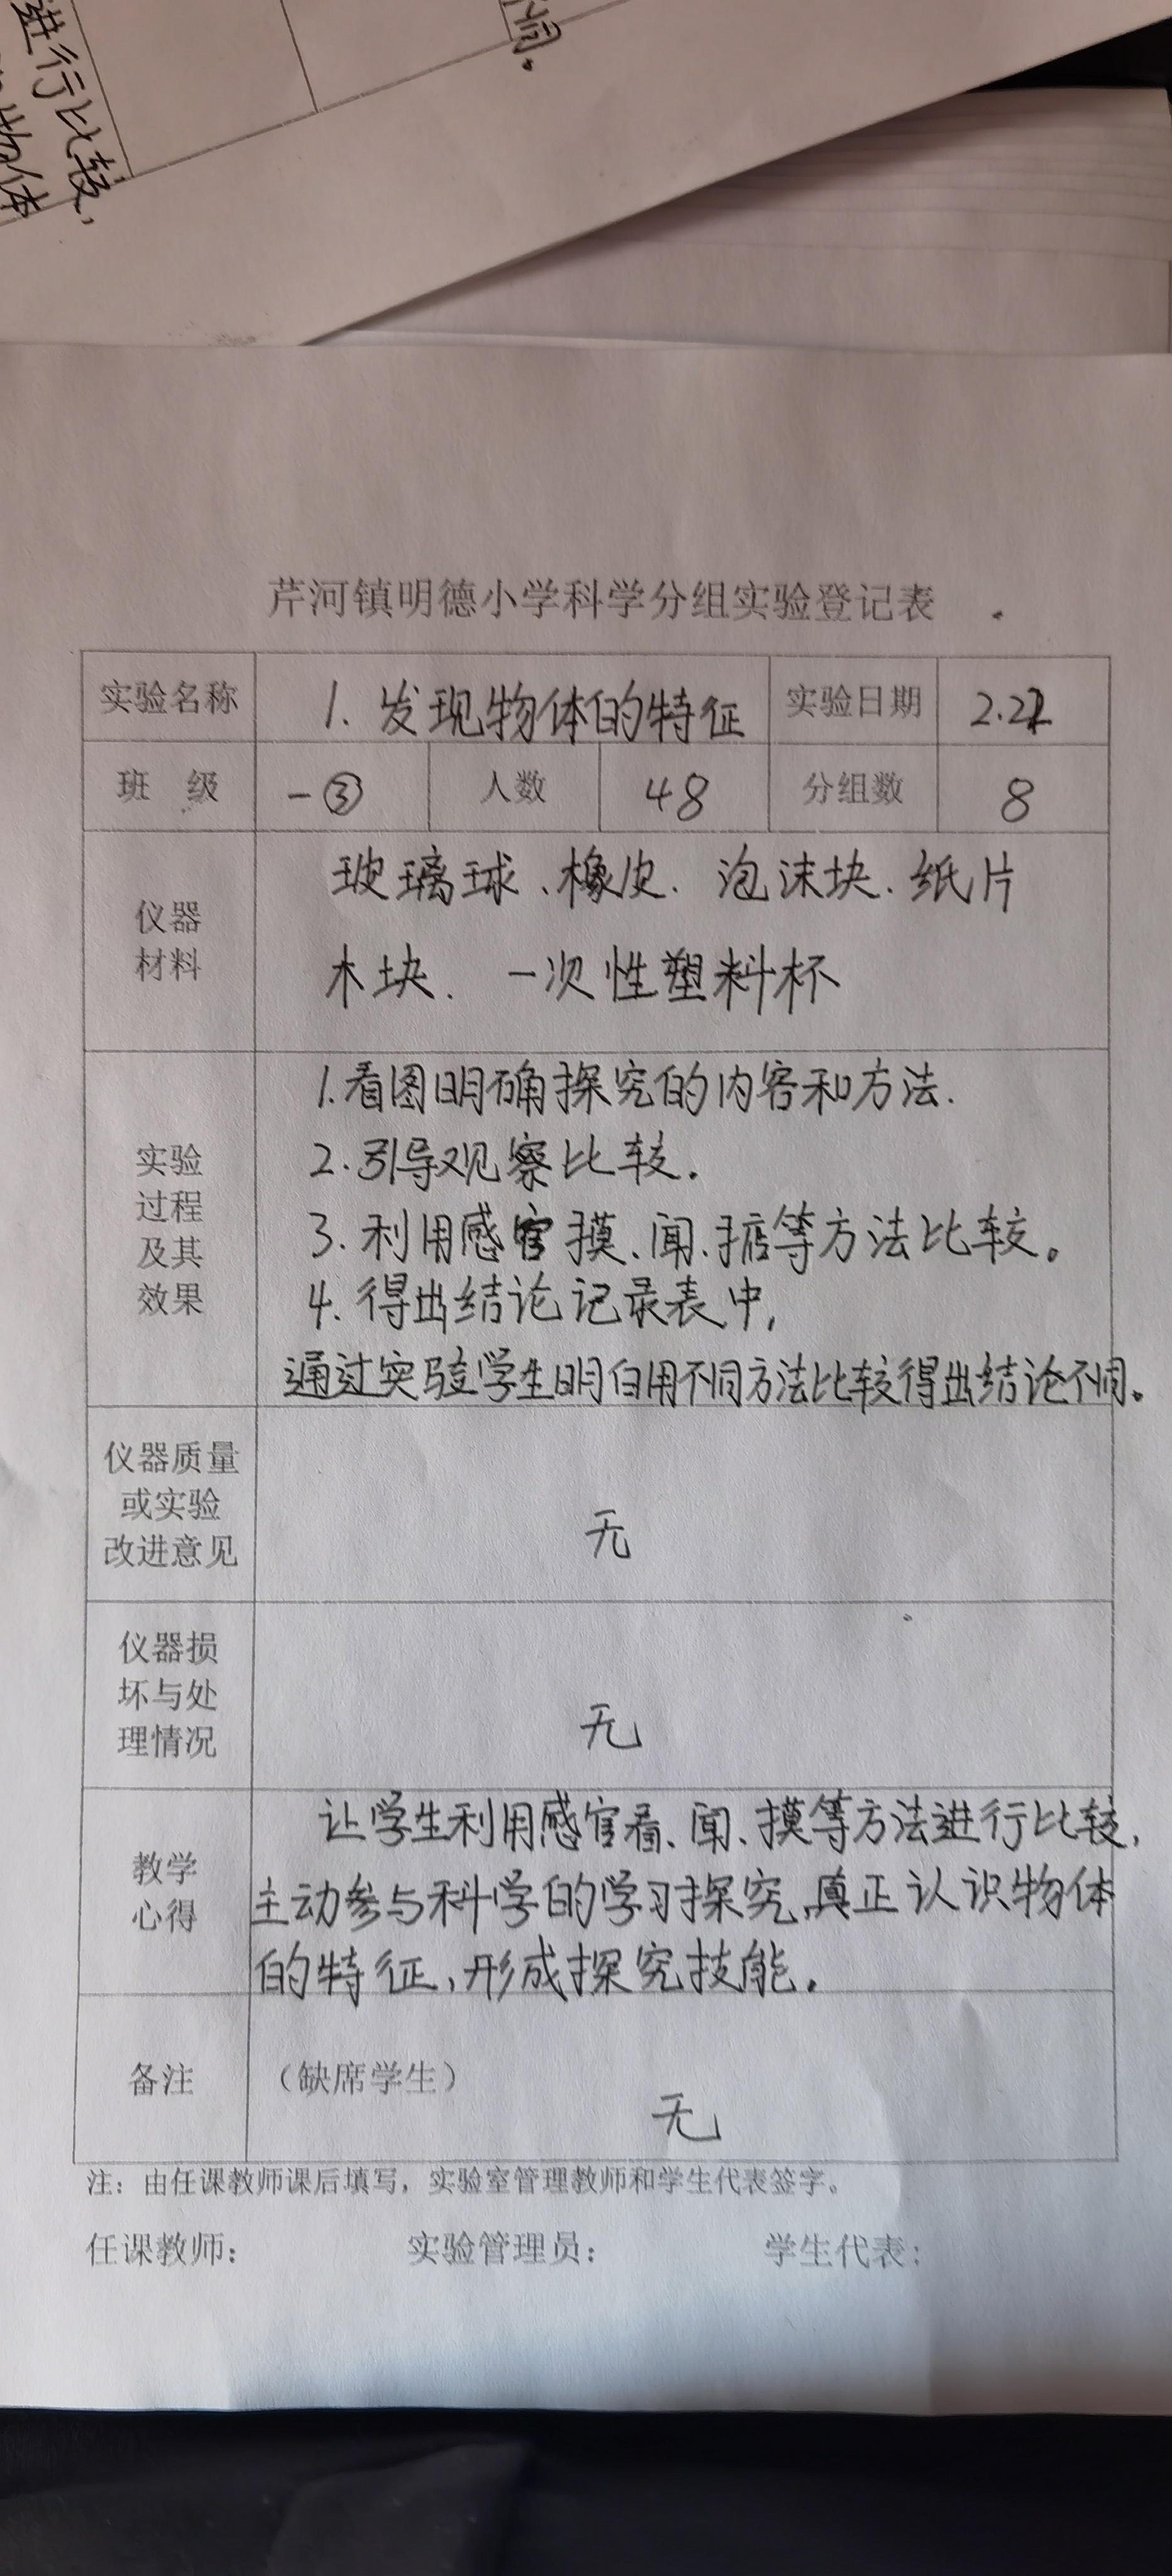 进行比较,
物体
不同.
芹河镇明德小学科学分组实验登记表
实验名称 1. 发现物体的特征 实验日期
班 级 一③ 人数 48 分组数 8
仪器
材料
玻璃球、橡皮. 泡沫块. 纸片
木块. 一次性塑料杯
实验
过程
及其
效果
1.看图明确探究的内容和方法.
2.引导观察比较.
3.利用感官摸、闻、掂等方法比较。
4.得出结论记录表中,
通过实验学生明白用不同方法比较得出结论不同。
仪器质量
或实验
改进意见
无
仪器损
坏与处
理情况
无
教学
心得
让学生利用感官看、闻、摸等方法进行比较,
主动参与科学的学习探究,真正认识物体
的特征,形成探究技能.
备注 (缺席学生)
无
注:由任课教师课后填写,实验室管理教师和学生代表签字。
任课教师: 实验管理员: 学生代表: